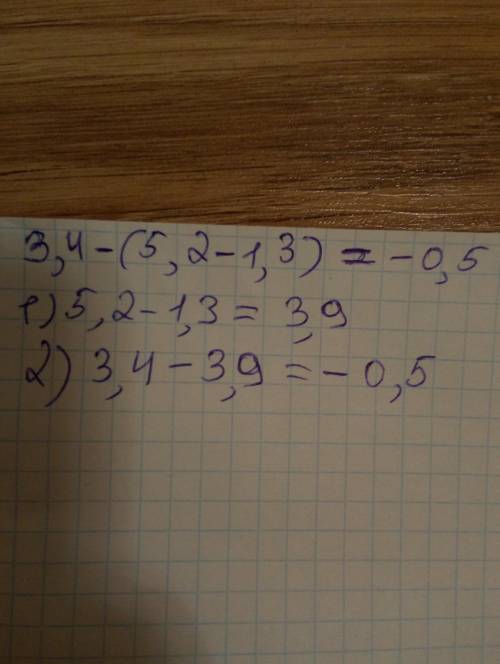 3,4-(5,2-1,3) = -0,5
1) 5,2-1,3 = 3,9
2) 3,4-3,9 = -0,5